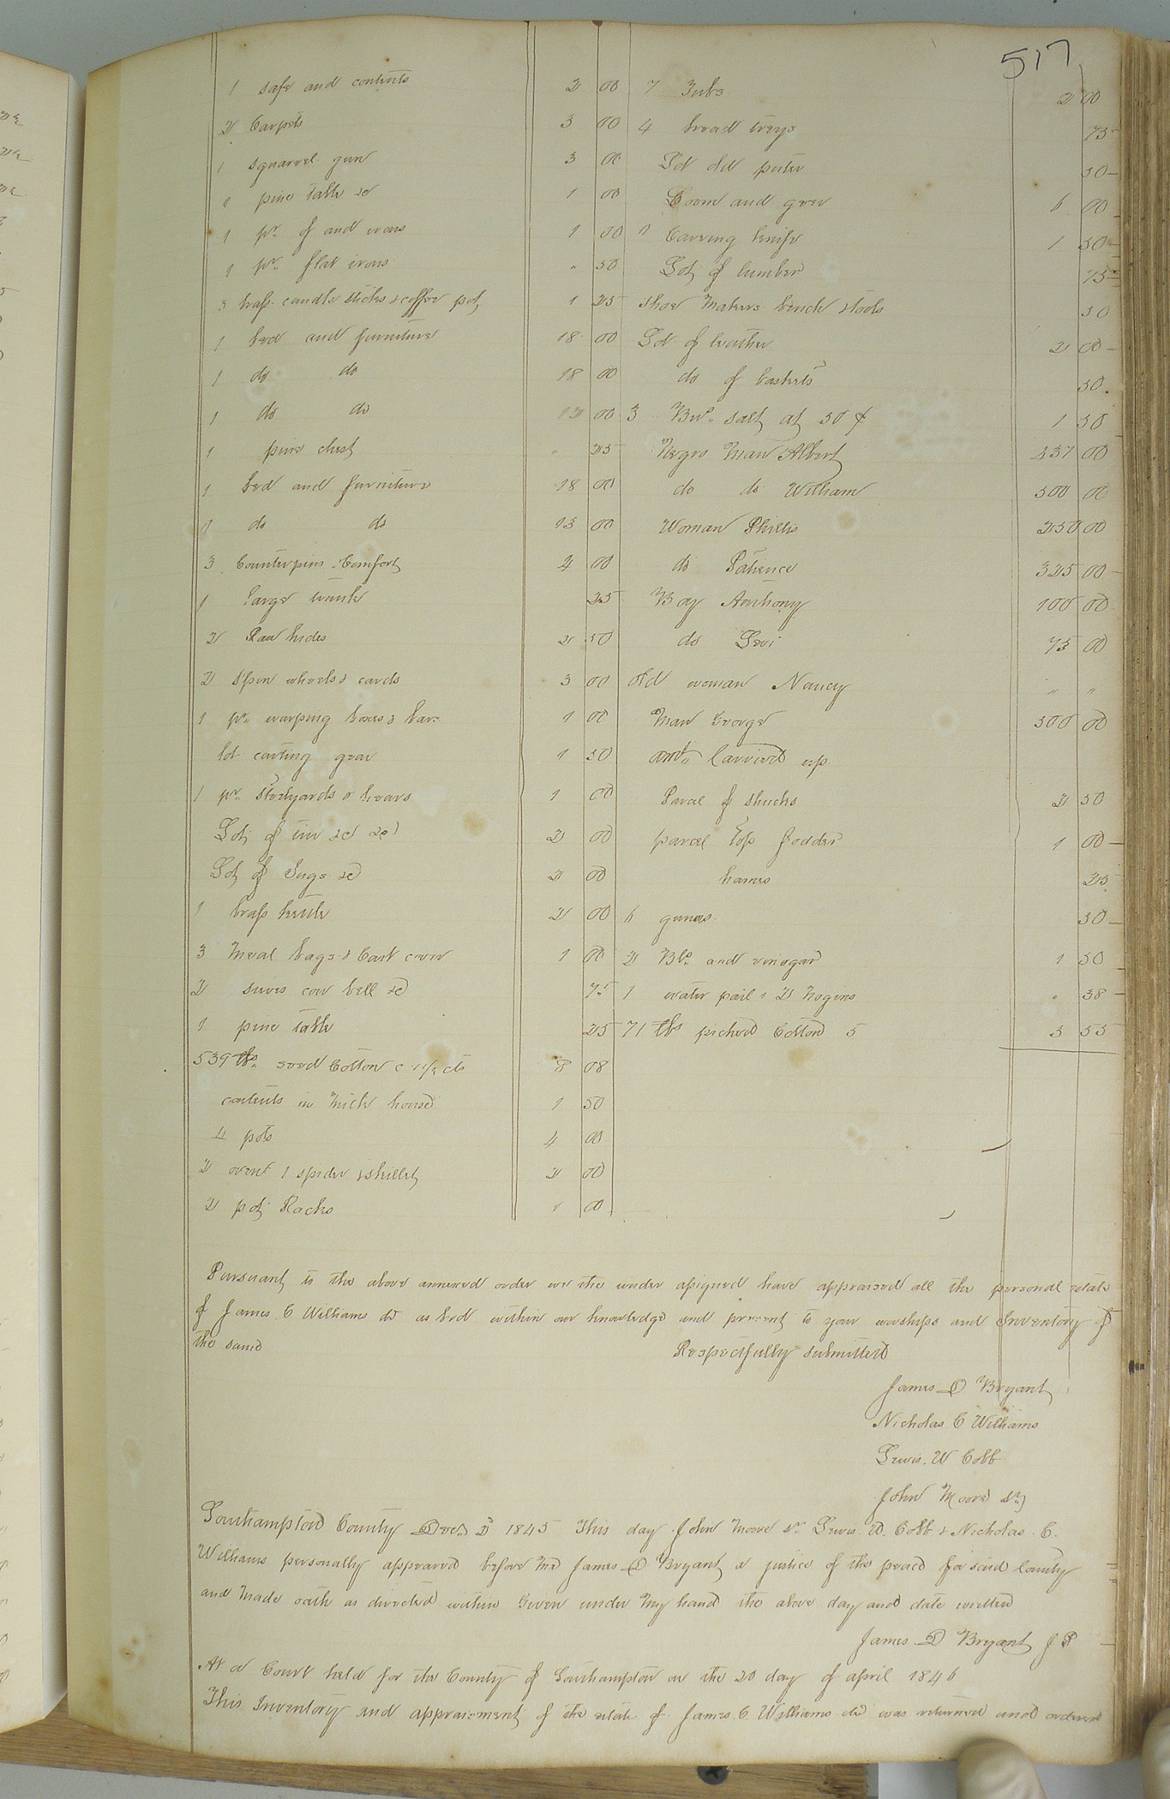 517
1 safe and contents 2 00
2 Carpets 3 00
1 squarrel gun 3 00
1 pine table &c 1 00
1 pr. of and irons 1 00
1 pr. flat irons " 50
3 brass candle sticks & coffee pot 1 25
1 bed and furniture 18 00
1 do do 18 00
1 do do 00
1 pine chest " 25
1 bed and furniture 18 00
1 do do 13 00
3 Counterpins & Comfort 4 00
1 large trunk 25
2 Raw hides 2 50
2 Spin wheels & cards 3 00
1 pr. warping boxes & bars 1 00
lot carting gear 1 50
1 pr. Stedyards & 1 00
Lot of tin &c &c 2 00
Lot of Jugs &c 2 00
1 brass kettle 2 00
3 Meal bags & Cart cover 1 00
2 sieves cow bell &c 75
1 pine table 25
539 lbs. seed Cotton 1 1/2 cts 8 08
contents in Milk house 1 50
4 pots 4 00
2 ovens 1 spider & skillet 2 00
2 pot Racks 1 00
7 Tubs 2 00
4 bread treys 75
Lot old puter 50
Loom and gear 6 00
1 Carving knife 1 50
Lot of lumber 75
Shoe Makers bench & tools 50
Lot of leather 2 00
do of baskets 50
3 Bus. salt at 50 ¢ 1 50
Negro Man Albert 437 00
do do William 500 00
Woman Phillis 250 00
do Patience 325 00
Boy Anthony 100 00
do Levi 75 00
Old woman Nancy " "
Man George 500 00
amt. Carried up
Parcel of shucks 2 50
parcel Top fodder 1 00
hames 25
6 50
2 Bls. and vinegar 1 50
1 water pail & 2 Nogins " 38
71 lbs picked Cotton 5 3 55
Pursuant to the above annexed order we the under assigned have appraised all the personal estate
of James C Williams dd as led within our knowledge and present to your worships and Inventory of
the same Respectfully submitted
James D Bryant
Nicholas C Williams
Lewis. W Cobb
John Moore Sr
Southampton County 1845 This day John Moore Sr Lewis W. Cobb & Nicholas C.
Williams personally appeared before me James D Bryant a justice of the peace for said County
and made oath as directed within Given under my hand the above day and date written
James D Bryant J P
At a Court held for the County of Southampton on the 20 day of april 1846
This Inventory and appraisement of the estate of James C Williams dd was returned and ordered